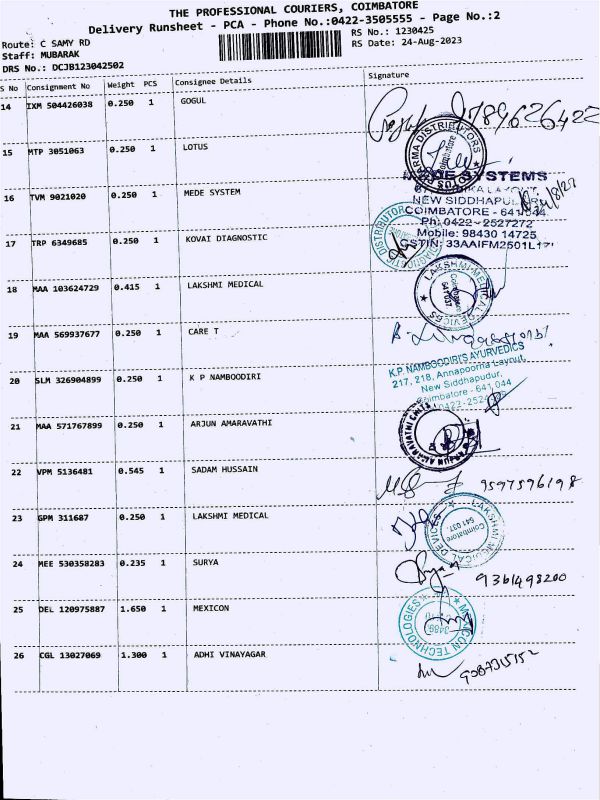 THE PROFESSIONAL COURIERS, COIMBATORE
Delivery Runsheet - PCA - Phone No.:0422-3505555 - Page No.:2
Route: C SAMY RD
RS No.: 1230425
Staff: MUBARAK
RS Date: 24-Aug-2023
DRS No.: DCJB123042502
S No Consignment No Weight PCS Consignee Details Signature
14 IXM 504426038 0.250 1 GOGUL 9789626422
15 MTP 3051063 0.250 1 LOTUS
PHARMA DISTRIBUTORS
16 TVM 9021020 0.250 1 MEDE SYSTEM
MEDE SYSTEMS
NEW SIDDHAPUDUR
COIMBATORE - 641 044
Ph: 0422 - 2527272
Mobile: 98430 14725
GSTIN: 33AAIFM2501L1
17 TRP 6349685 0.250 1 KOVAI DIAGNOSTIC
DISTRIBUTOR
18 MAA 103624729 0.415 1 LAKSHMI MEDICAL
LAKSHMI MEDICAL DEVICES
Coimbatore
641 037
19 MAA 569937677 0.250 1 CARE T
20 SLM 326904899 0.250 1 K P NAMBOODIRI
K.P. NAMBOODIRI'S AYURVEDICS
217, 218, Annapoorna Layout,
New Siddhapudur,
Coimbatore - 641 044
21 MAA 571767899 0.250 1 ARJUN AMARAVATHI
ARJUN AMARAVATHI CHITS
22 VPM 5136481 0.545 1 SADAM HUSSAIN 9597596198
23 GPM 311687 0.250 1 LAKSHMI MEDICAL
LAKSHMI MEDICAL DEVICES
Coimbatore
641 037
24 MEE 530358283 0.235 1 SURYA Surya 9361498200
25 DEL 120975887 1.650 1 MEXICON
MEXICON TECHNOLOGIES
26 CGL 13027069 1.300 1 ADHI VINAYAGAR